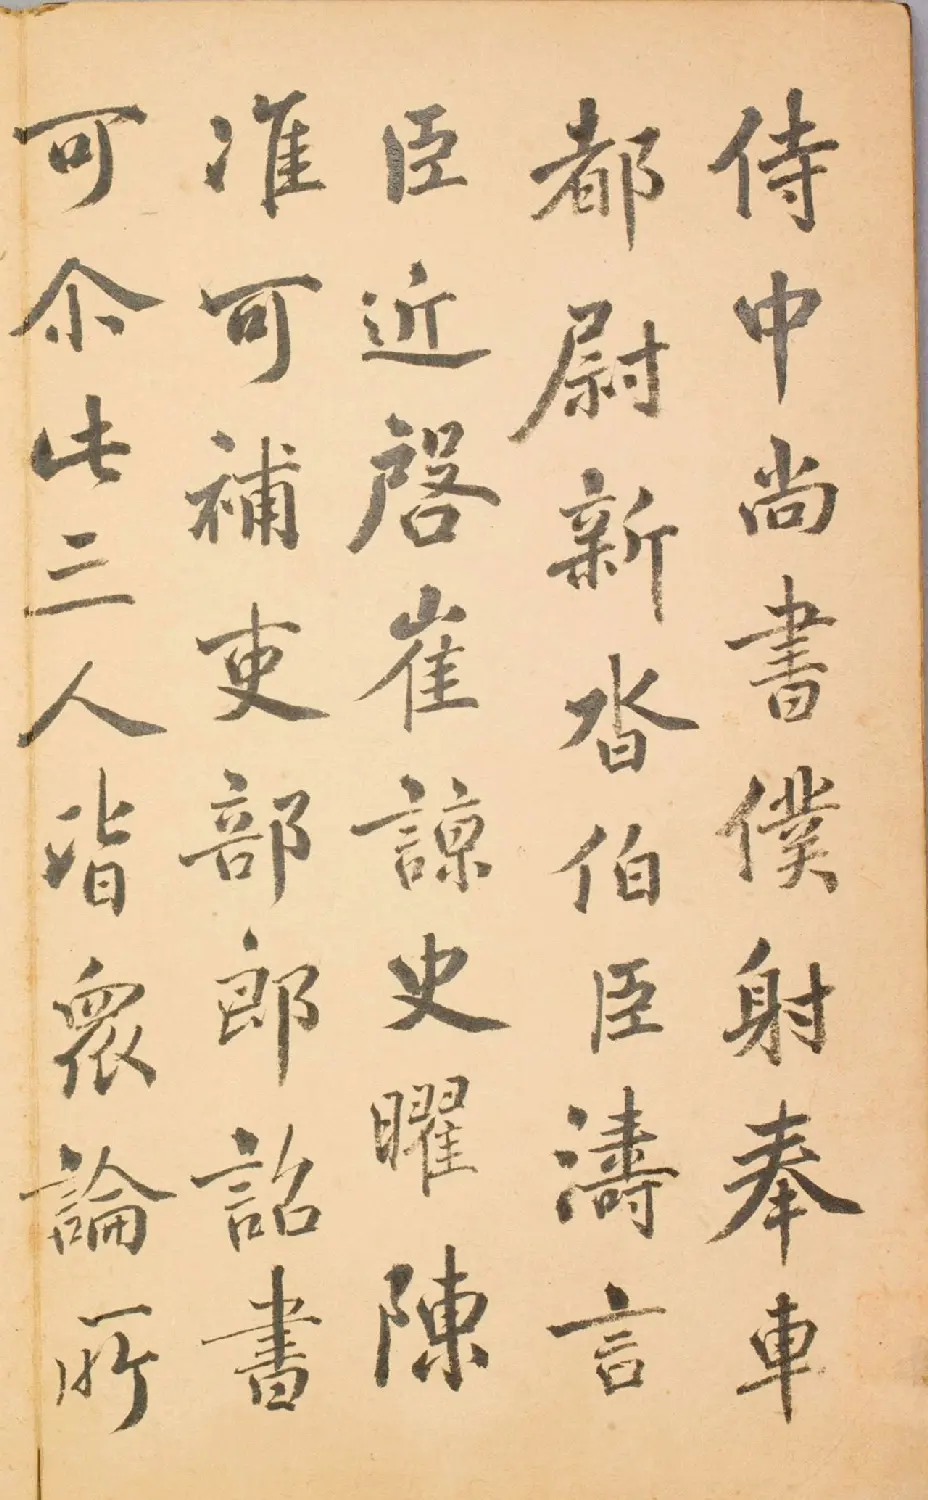 侍中尚書僕射奉車
都尉新沓伯臣濤言
臣近啓崔諒史曜陳
准可補吏部郎詔書
可尒此三人皆眾論所